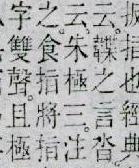 也經典
云。韘之言沓
云。朱極三。注
之。食指將指
字雙聲且極